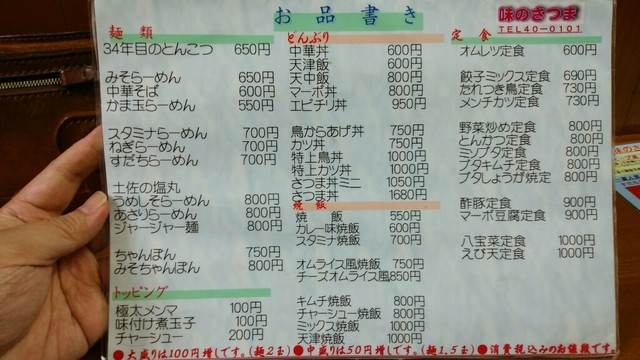 お品書き
味のさつま
TEL40-0101
麺類
34年目のとんこつ 650円
みそらーめん 650円
中華そば 600円
かま玉らーめん 550円
スタミナらーめん 700円
ねぎらーめん 700円
すだちらーめん 700円
土佐の塩丸
うめしそらーめん 800円
あさりらーめん 800円
ジャージャー麺 800円
ちゃんぽん 750円
みそちゃんぽん 800円
トッピング
極太メンマ 100円
味付け煮玉子 100円
チャーシュー 200円
どんぶり
中華丼 600円
天津飯 600円
天中飯 800円
マーボ丼 800円
エビチリ丼 950円
鳥からあげ丼 750円
カツ丼 750円
特上鳥丼 1000円
特上カツ丼 1000円
さつま丼ミニ 1050円
さつま丼 1680円
焼飯
焼飯 550円
カレー味焼飯 600円
スタミナ焼飯 700円
オムライス風焼飯 750円
チーズオムライス風 850円
キムチ焼飯 800円
チャーシュー焼飯 800円
ミックス焼飯 1000円
天津焼飯 1000円
定食
オムレツ定食 600円
餃子ミックス定食 690円
たれつき鳥定食 730円
メンチカツ定食 730円
野菜炒め定食 800円
とんかつ定食 800円
ミソブタ定食 800円
ブタキムチ定食 800円
ブタしょうが焼定 800円
酢豚定食 900円
マーボ豆腐定食 900円
八宝菜定食 1000円
えび天定食 1000円
●大盛りは100円増しです。(麺2玉) ●中盛りは50円増しです。(麺1.5玉) ●消費税込みのお値段です。